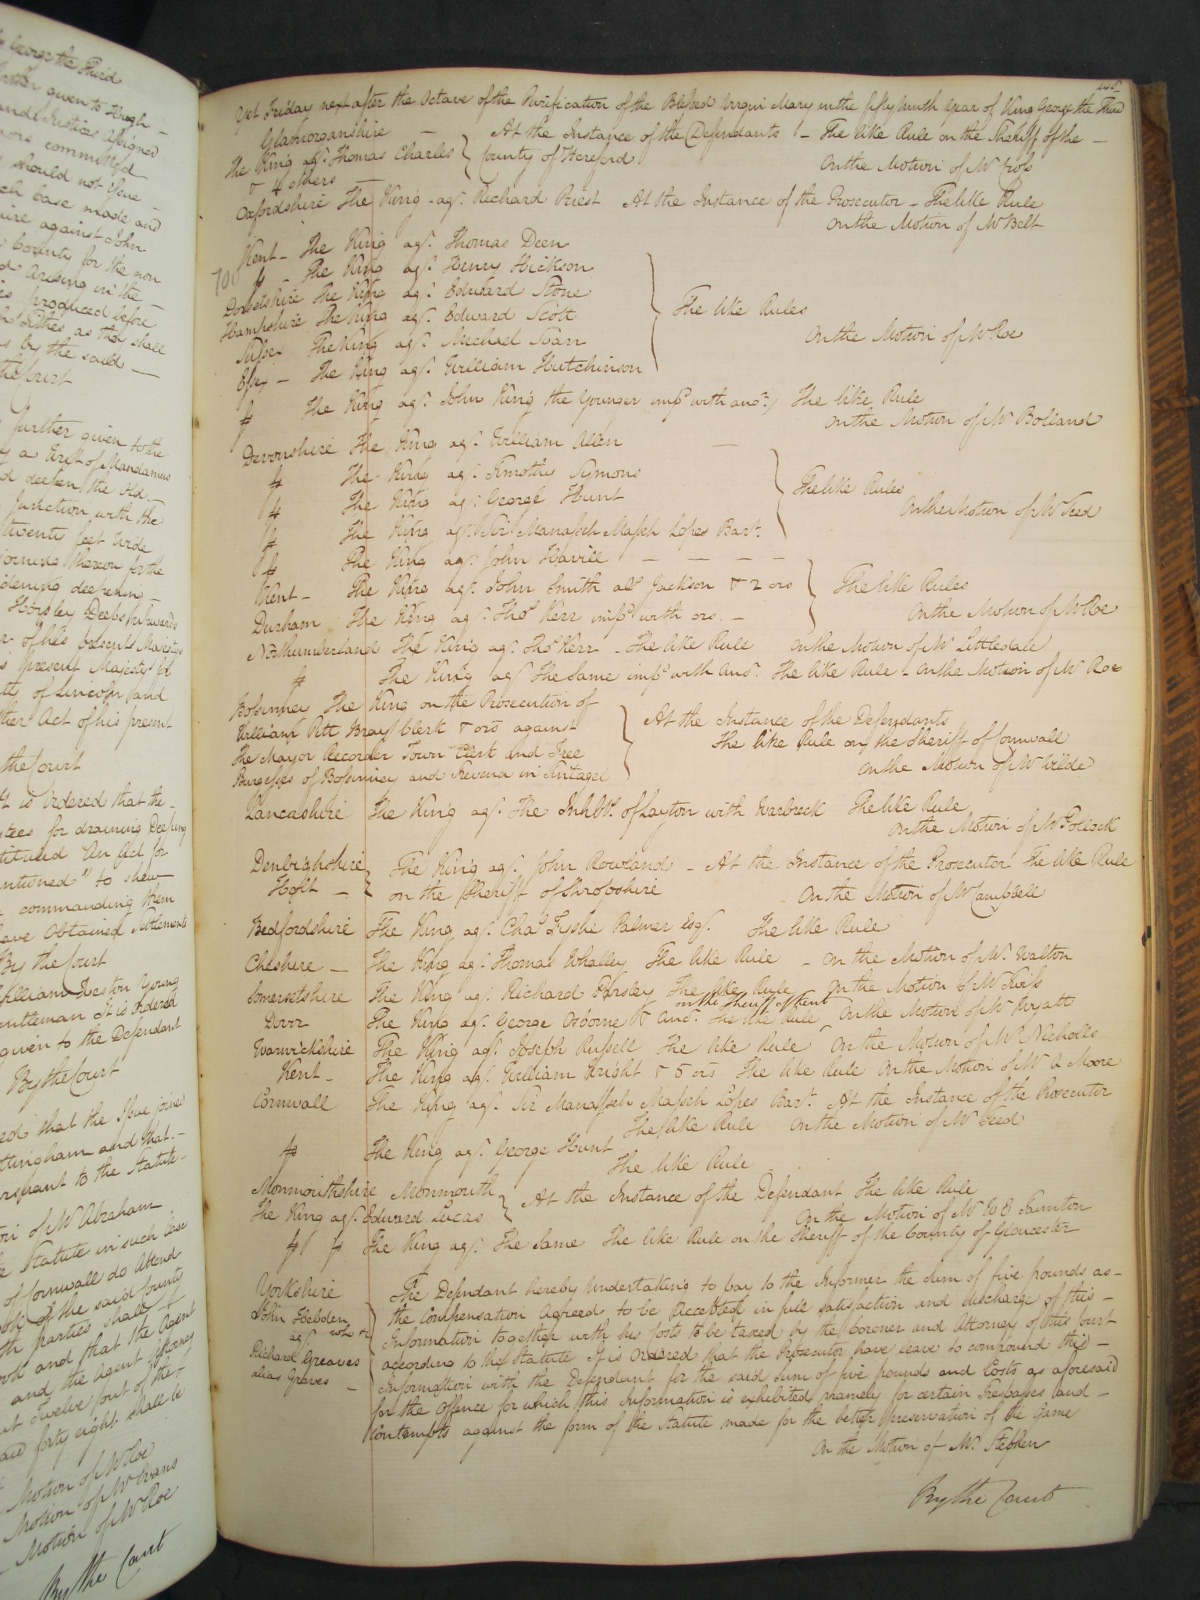 by George the Third
further given to Hugh -
and Justices assigned
more committed
should not Issue -
such case made and
shire against John
County for the non
d Arising in the -
is produced before
Tithes as they shall
s by the said -
the Court
further given to the
y a Writ of Mandamus
d deepen the Old
Junction with the
twenty feet wide
joining thereon for the
idening deepening -
r of his present Majesty
s present Majesty
ty of Lincoln and
ther Act of his present
the Court
It is Ordered that the -
tees for draining Deeping
tituted "An Act for
entioned" to shew
commanding them
have Obtained Settlements
By the Court
William Weston Young
gentleman It is Ordered
given to the Defendant
By the Court
red that the Issue joined
ttingham and that -
ursuant to the Statute -
on of Mr Abraham
e Statute in such Case
of Cornwall do Attend
of the said County
th parties shall
and that the Agent
and the Agent Attorney
Twelve out of the
said forty eight shall be
Motion of Mr Roe
Motion of Mr Evans
Motion of Mr Roe
By the Court
445
Yet Friday next after the Octave of the Purification of the Blessed Virgin Mary in the fifty ninth year of King George the Third
Glamorganshire - At the Instance of the Defendants - The like Rule on the Sheriff of the -
The King agt. Thomas Charles County of Hereford On the Motion of Mr Cross
& 4 others -
Oxfordshire The King agt. Richard Priest At the Instance of the Prosecutor - The like Rule
On the Motion of Mr Belt
Kent - The King agt. Thomas Deen
700 fs - The King agt. Henry Hickson
Dorsetshire The King agt. Edward Stone
Hampshire The King agt. Edward Scott The like Rules
Sussex The King agt. Michael Soan On the Motion of Mr Roe
Essex - The King agt. William Hutchinson
fs The King agt. John King the Younger impd with anor. The like Rule
On the Motion of Mr Bolland
Devonshire The King agt. William Allen -
fs The King agt. Timothy Symons
fs The King agt. George Hunt The like Rules
fs The King agt. Sir Manasseh Masseh Lopes Bart. On the Motion of Mr Teed
fs The King agt. John Havill - - - -
Kent - The King agt. John Smith als Jackson & 2 ors The like Rules
Durham The King agt. Thos Kerr impd with ors. - On the Motion of Mr Roe
Northumberland The King agt. Thos Kerr - The like Rule On the Motion of Mr Littledale
fs The King agt The Same impd with anor. The like Rule - On the Motion of Mr Roe
Bossinney The King on the Prosecution of
William Pitt Bray Clerk & ors against At the Instance of the Defendants
The Mayor Recorder Town Clerk and Free The like Rule on the Sheriff of Cornwall
Burgesses of Bossinney and Trevena in Tintagel On the Motion of Mr Wilde
Lancashire The King agt. The Inhabts. of Layton with Warbreck The like Rule
On the Motion of Mr Pollock
Denbighshire The King agt. John Rowland - At the Instance of the Prosecutor The like Rule
Holt - on the Sheriff of Shropshire On the Motion of Mr Campbell
Bedfordshire The King agt. Chas Fyshe Palmer Esqr. The like Rule
Cheshire - The King agt. Thomas Whalley The like Rule - On the Motion of Mr. Walton
Somersetshire The King agt. Richard Pursley The like Rule On the Motion of Mr
on the Sheriff of Kent
Dover The King agt. George Osborne & anor. The like Rule On the Motion of Mr Wyatt
Warwickshire The King agt. Joseph Russell The like Rule On the Motion of Mr Nicholls
Kent - The King agt. William Wright & 5 ors The like Rule On the Motion of Mr A Moore
Cornwall The King agt. Sir Manasseh Masseh Lopes Bart. At the Instance of the Prosecutor
The like Rule On the Motion of Mr Teed
fs The King agt. George Hunt
The like Rule
Monmouthshire Monmouth At the Instance of the Defendant The like Rule
The King agt. Edward Lucas On the Motion of Mr W E Taunton
fs fs The King agt. The Same The like Rule on the Sheriff of the County of Gloucester
Yorkshire The Defendant hereby Undertaking to pay to the Informer the Sum of five pounds as -
John Hebden the Compensation Agreed to be Received in full satisfaction and discharge of this -
who &c Information together with his Costs to be taxed by the Coroner and Attorney of this Court
agt
Richard Greaves according to the Statute It is Ordered that the Prosecutor have leave to compound this -
alias Graves - Information with the Defendant for the said sum of five pounds and Costs as aforesaid
for the Offence for which this Information is exhibited namely for certain Trespasses and -
Contempts against the form of the Statute made for the better preservation of the Game
On the Motion of Mr. Stephen
By the Court